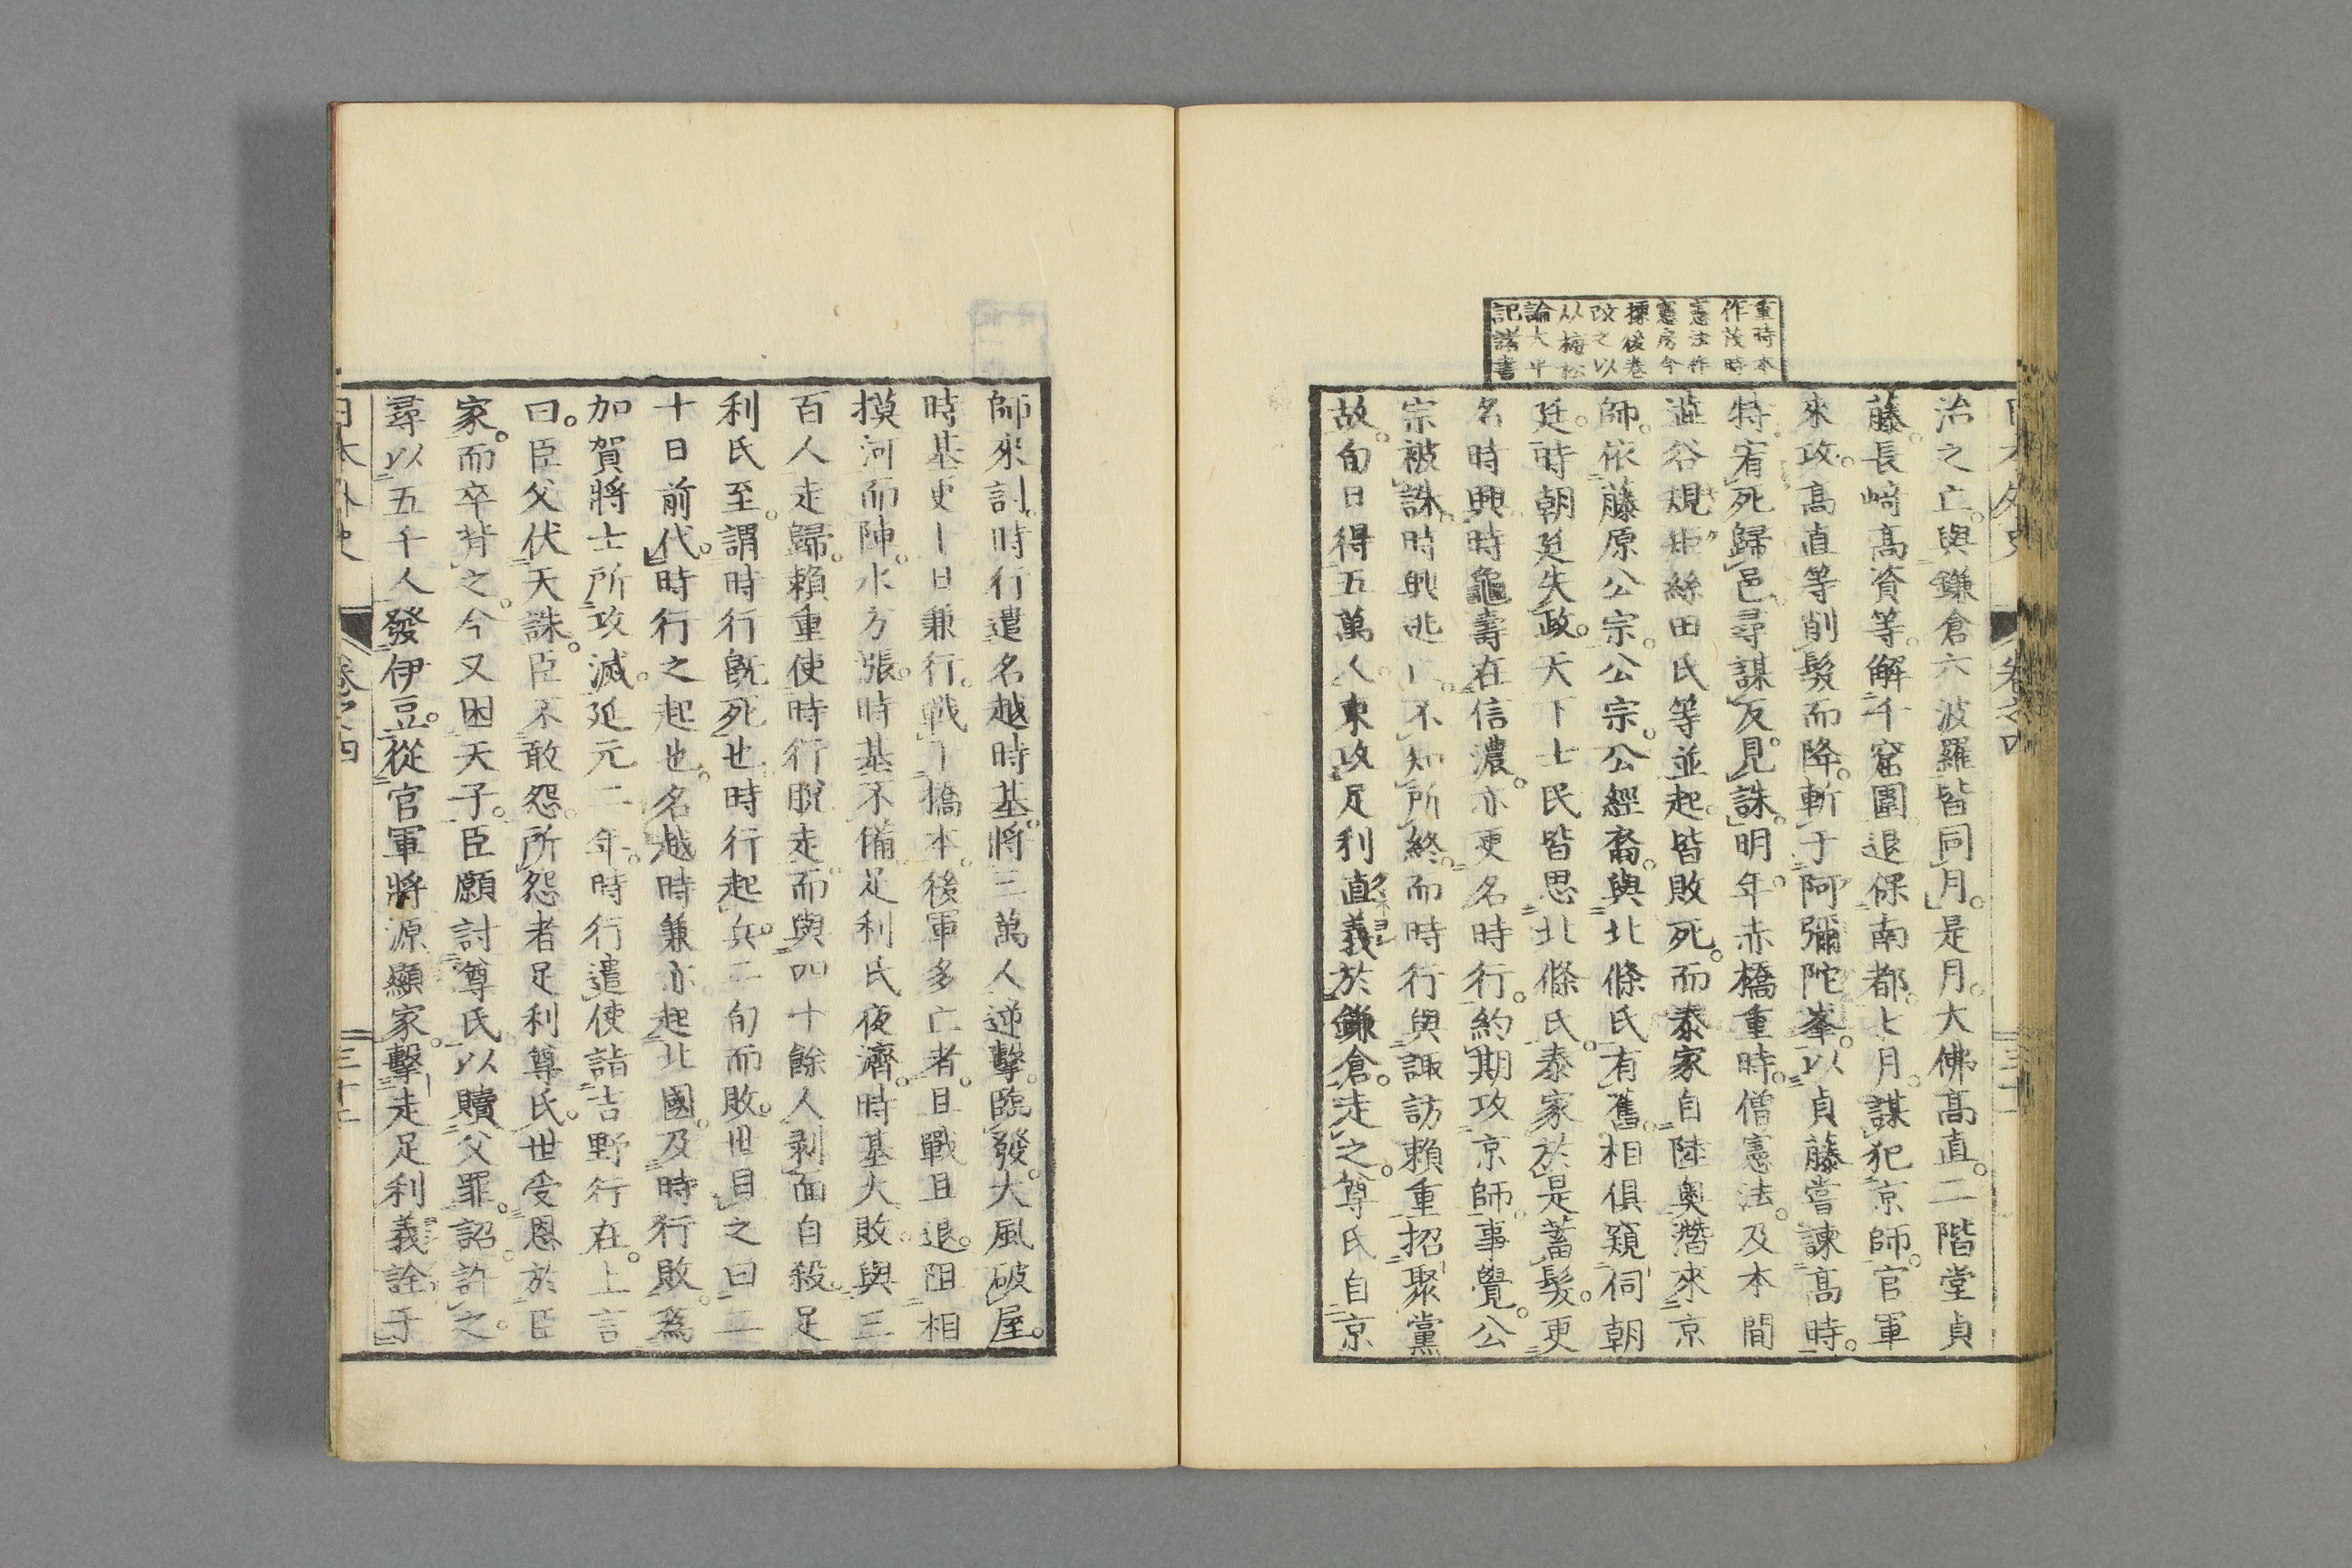 重時本
作茂時
憲法作
憲房今
據後卷
改之以
從梅松
論太平
記諸書
治之亡。與鎌倉六波羅皆同月。是月。大佛高直。二階堂貞
藤。長﨑高資等。解千窟圍。退保南都。七月。謀犯京師。官軍
來攻。高直等削髮而降。斬于阿彌陀峯。以貞藤嘗諫高時。
特宥死歸邑。尋謀反。見誅。明年。赤橋重時。僧憲法。及本間
澁谷規矩絲田氏等並起。皆敗死。而泰家自陸奧潛來京
師。依藤原公宗。公宗。公經裔。與北條氏有舊。相俱窺伺朝
廷。時朝廷失政。天下士民皆思北條氏。泰家於是蓄髮。更
名時興。時龜壽在信濃。亦更名時行。約期攻京師。事覺。公
宗被誅。時興逃亡。不知所終。而時行與諏訪賴重招聚黨
故。旬日得五萬人。東攻足利直義於鎌倉。走之。尊氏自京
師來討。時行遣名越時基。將三萬人逆擊。臨發。大風破屋。
時基吏十日兼行。戰于橋本。後軍多亡者。且戰且退。阻相
摸河而陣。水方漲。時基不備。足利氏夜濟。時基大敗。與三
百人走歸。賴重使時行脫走。而與四十餘人剥面自殺。足
利氏至。謂時行旣死也。時行起兵。二旬而敗。世目之曰二
十日前代。時行之起也。名越時兼亦起北國。及時行敗。爲
加賀將士所攻滅。延元二年。時行遣使詣吉野行在。上言
曰。臣父伏天誅。臣不敢怨。所怨者足利尊氏。世受恩於臣
家。而卒背之。今又困天子。臣願討尊氏。以贖父罪。詔許之。
尋以五千人發伊豆。從官軍將源顯家。擊走足利義詮于
日本外史
卷之四
三十二